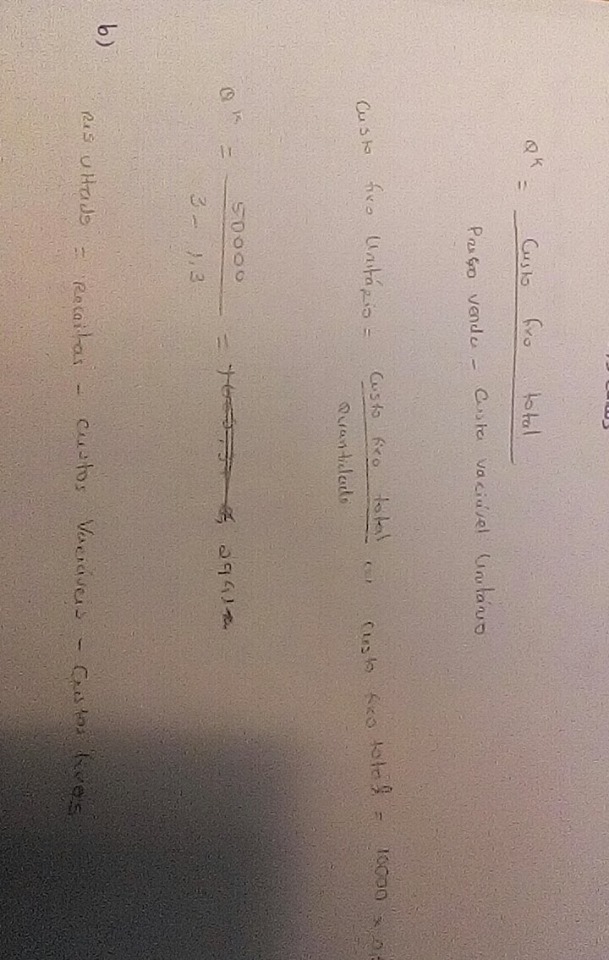 Q^K = Custo fixo total
Preço venda - Custo variável Unitário
Custo fixo Unitário = Custo fixo total / Quantidade custo fixo total = 10000 ×
Q^K = 50000 / 3 - 1,3 =
b)
Resultado = Receitas - Custos Variáveis - Custos fixos